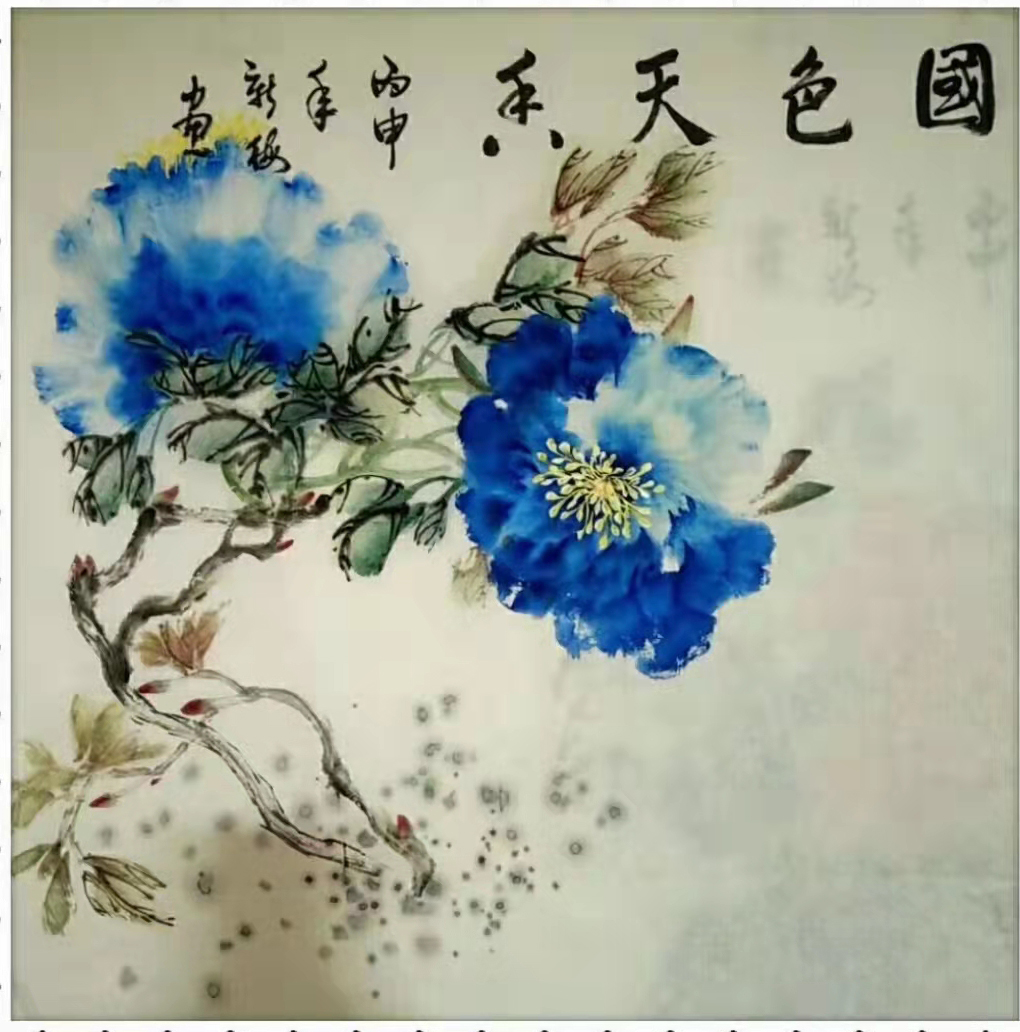 國色天香
丙申
年
新梅
畫